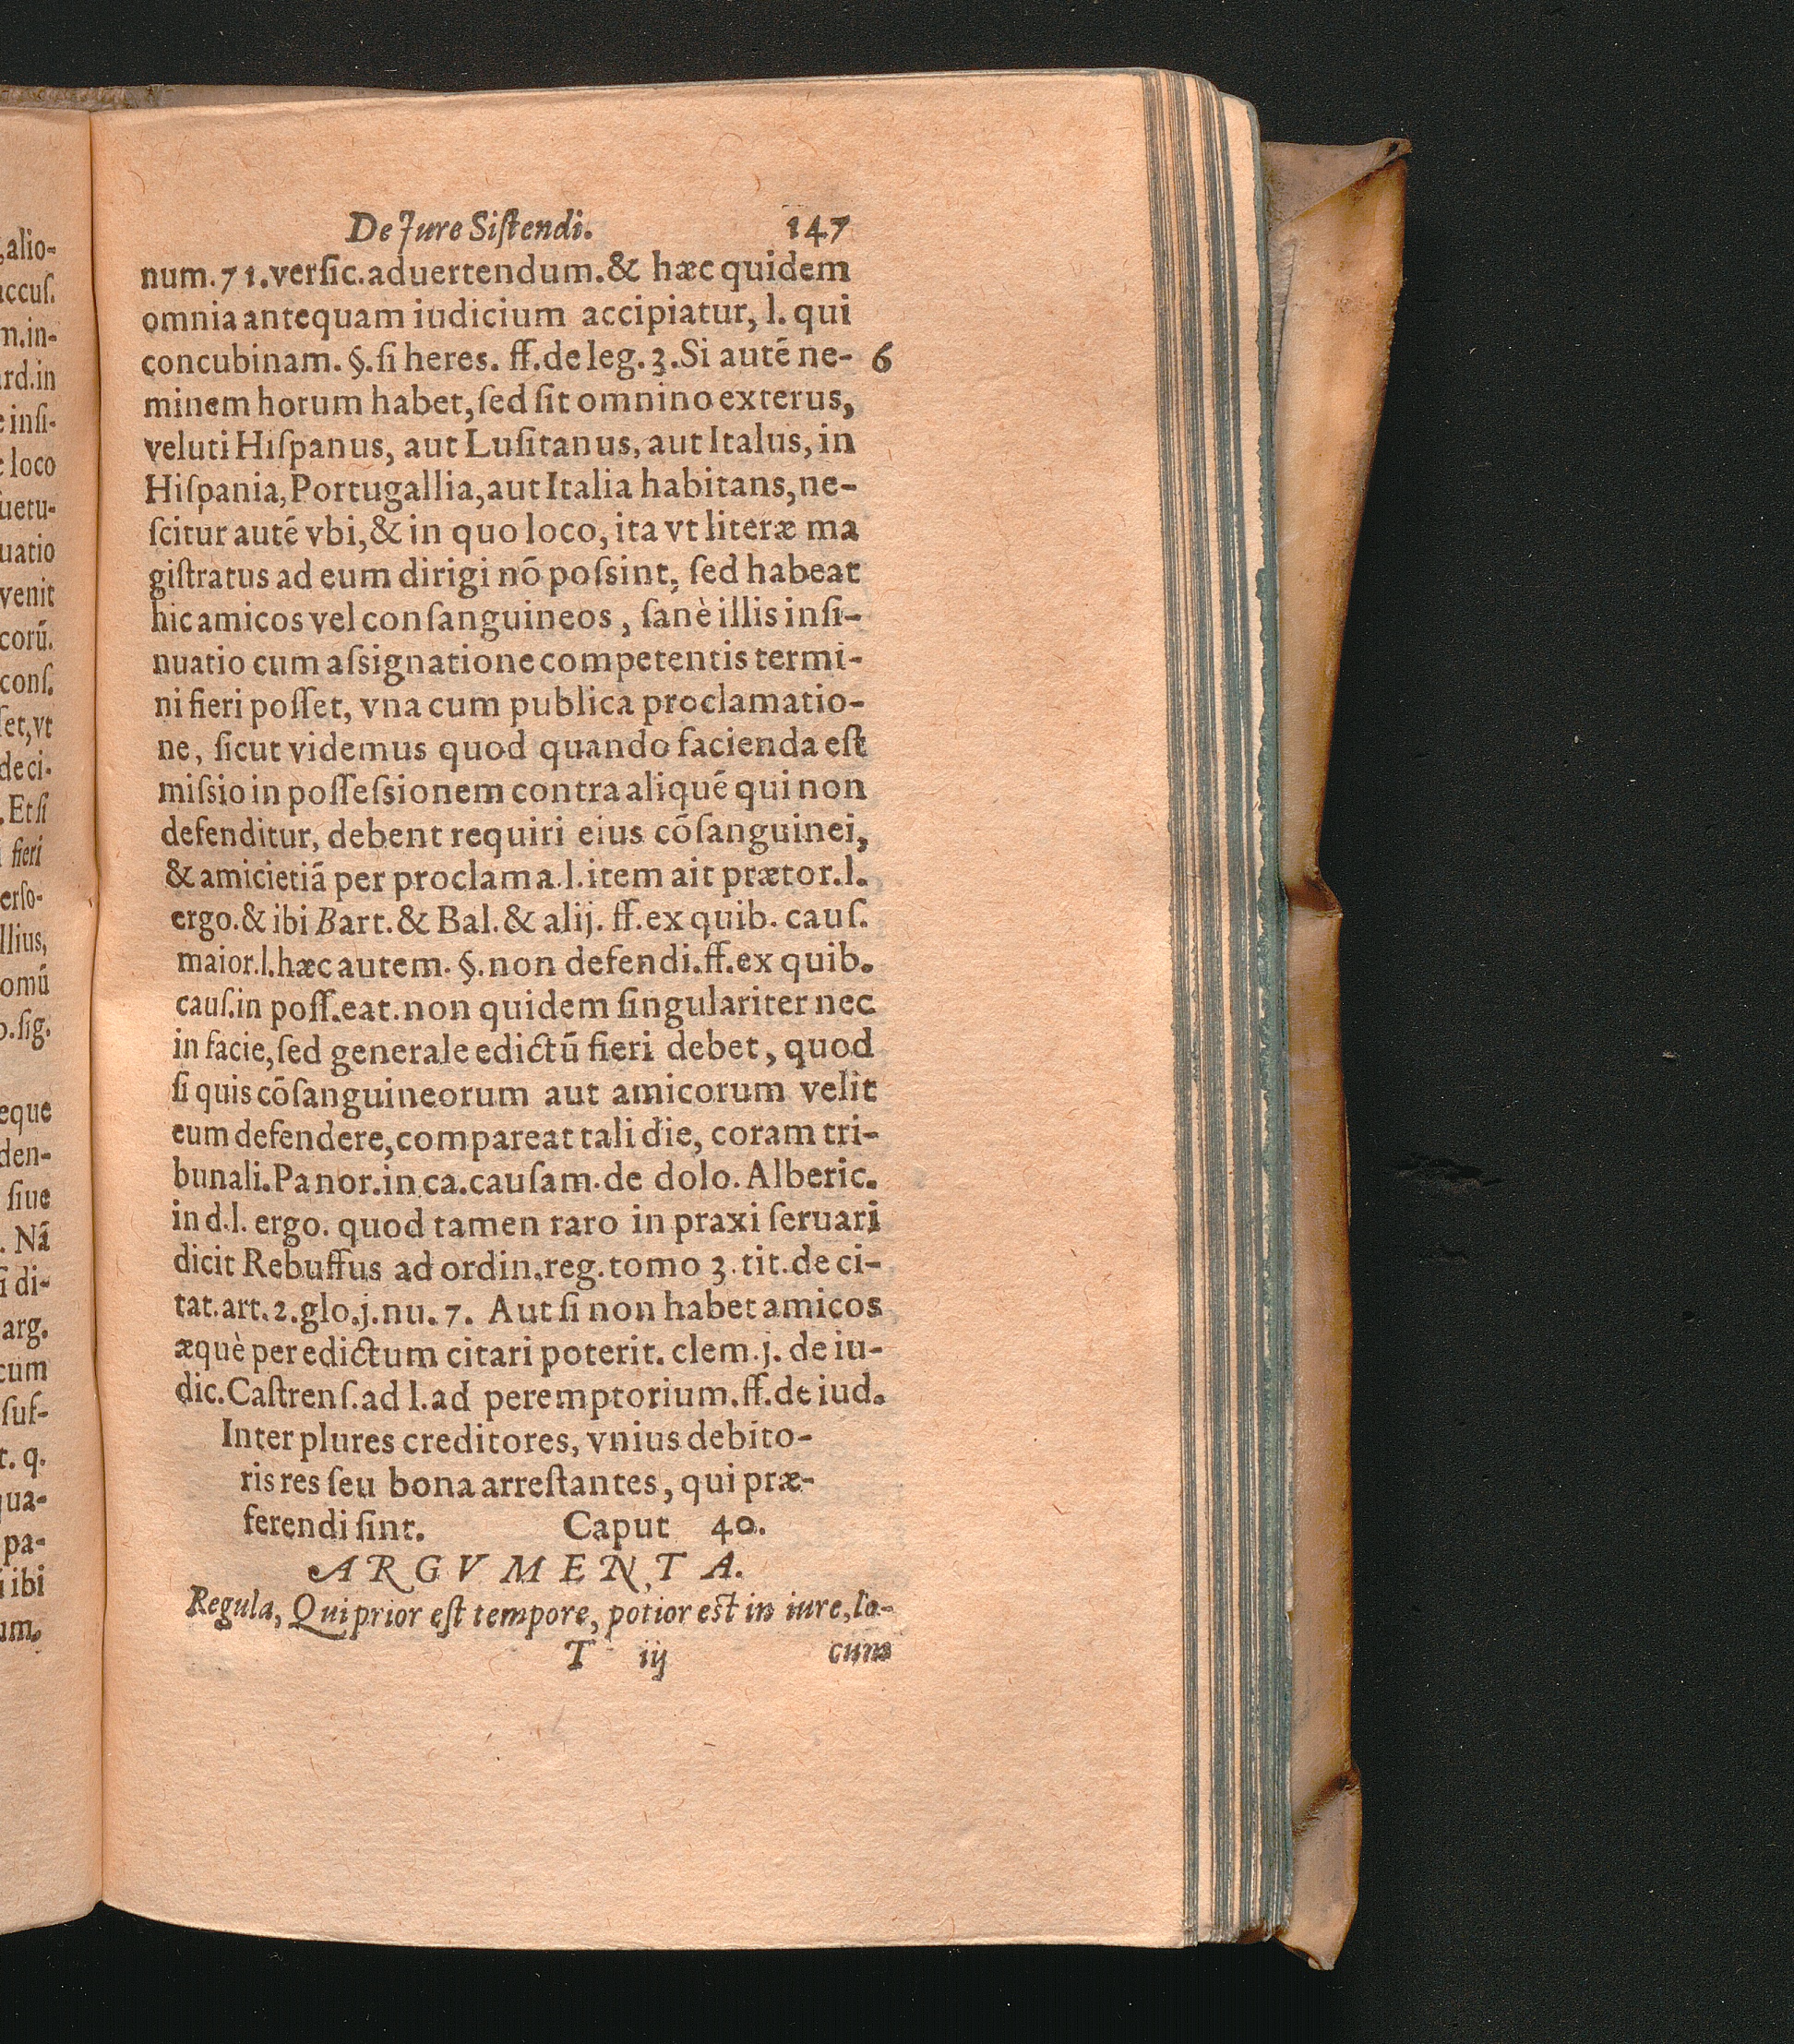 De Jure Siſtendi. 147
num. 71. verſic. aduertendum. & hæc quidem
omnia antequam iudicium accipiatur, l. qui
concubinam. §. ſi heres. ff. de leg. 3. Si autē ne- 6
minem horum habet, ſed ſit omnino exterus,
veluti Hiſpanus, aut Luſitanus, aut Italus, in
Hiſpania, Portugallia, aut Italia habitans, ne-
ſcitur autē vbi, & in quo loco, ita vt literæ ma
giſtratus ad eum dirigi nō poſsint, ſed habeat
hic amicos vel conſanguineos, ſanè illis inſi-
nuatio cum aſsignatione competentis termi-
ni fieri poſſet, vna cum publica proclamatio-
ne, ſicut videmus quod quando facienda eſt
miſsio in poſſeſsionem contra aliquē qui non
defenditur, debent requiri eius cōſanguinei,
& amici etiā per proclama. l. item ait prætor. l.
ergo. & ibi Bart. & Bal. & alij. ff. ex quib. cauſ.
maior. l. hæc autem. §. non defendi. ff. ex quib.
cauſ. in poſſ. eat. non quidem ſingulariter nec
in facie, ſed generale edictū fieri debet, quod
ſi quis cōſanguineorum aut amicorum velit
eum defendere, compareat tali die, coram tri-
bunali. Panor. in ca. cauſam. de dolo. Alberic.
in d. l. ergo. quod tamen raro in praxi ſeruari
dicit Rebuffus ad ordin. reg. tomo 3. tit. de ci-
tat. art. 2. glo. j. nu. 7. Aut ſi non habet amicos
æquè per edictum citari poterit. clem. j. de iu-
dic. Caſtrenſ. ad l. ad peremptorium. ff. de iud.
Inter plures creditores, vnius debito-
ris res ſeu bona arreſtantes, qui præ-
ferendi ſint. Caput 40.
ARGVMENTA.
Regula, Qui prior eſt tempore, potior est in iure, lo-
T iij cum